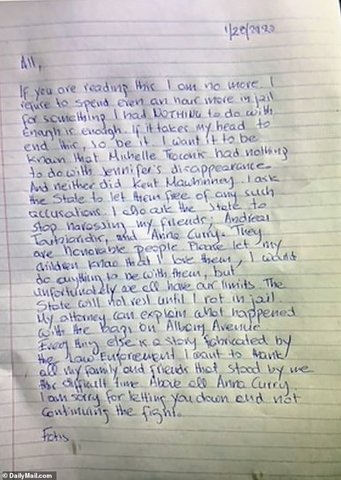 1/28/2020
All,
If you are reading this I am no more. I
refuse to spend even an hour more in jail
for something I had NOTHING to do with
Enough is enough. If it takes my head to
end this, so be it. I want it to be
known that Michelle Troconis had nothing
to do with Jennifer's disappearance.
And neither did Kent Mawhinney. I ask
the State to let them free of any such
accusations. I also ask the State to
stop harassing my friends, Andreas
Toutziaridis, and Anna Curry. They
are honorable people Please let my
children know that I love them, I would
do anything to be with them, but
unfortunately we all have our limits. The
State will not rest until I rot in jail.
My attorney can explain what happened
with the bags on Albany Avenue
Everything else is a story fabricated by
the Law Enforcement. I want to thank
all my family and friends that stood by me
this difficult time Above all Anna Curry.
I am sorry for letting you down and not
continuing the fight.
Fotis
© DailyMail.com